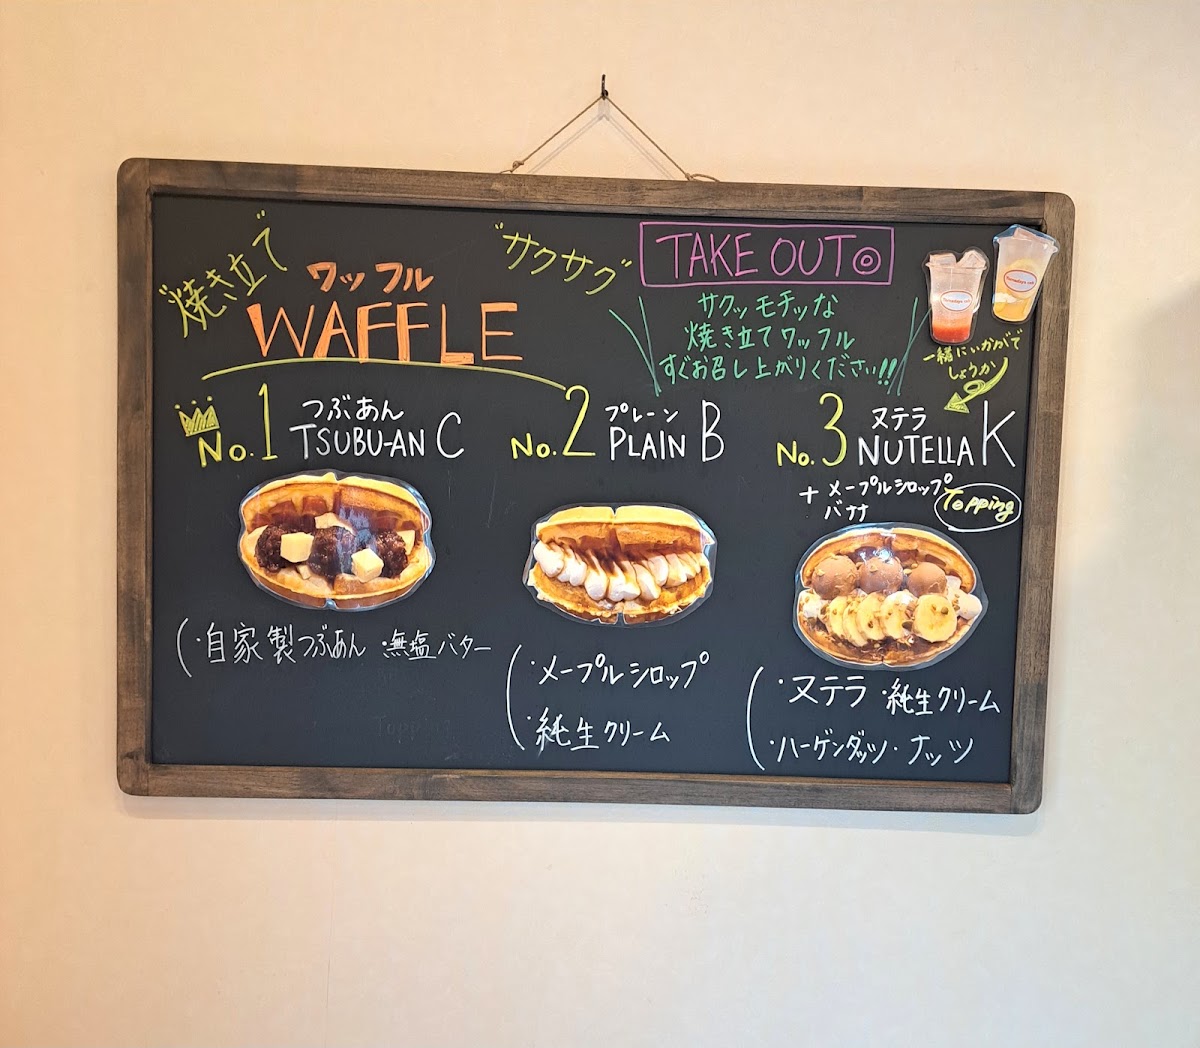 "焼き立て"
ワッフル
WAFFLE
"サクサク"
TAKE OUT◎
サクッモチッな
焼き立てワッフル
すぐお召し上がりください!!
一緒にいかがで
しょうか
No.1 つぶあん
TSUBU-AN C
No.2 プレーン
PLAIN B
No.3 ヌテラ
NUTELLA K
+ メープルシロップ
バナナ
Topping
・自家製つぶあん ・無塩バター
・メープルシロップ
・純生クリーム
・ヌテラ ・純生クリーム
・ハーゲンダッツ・ナッツ
Topping